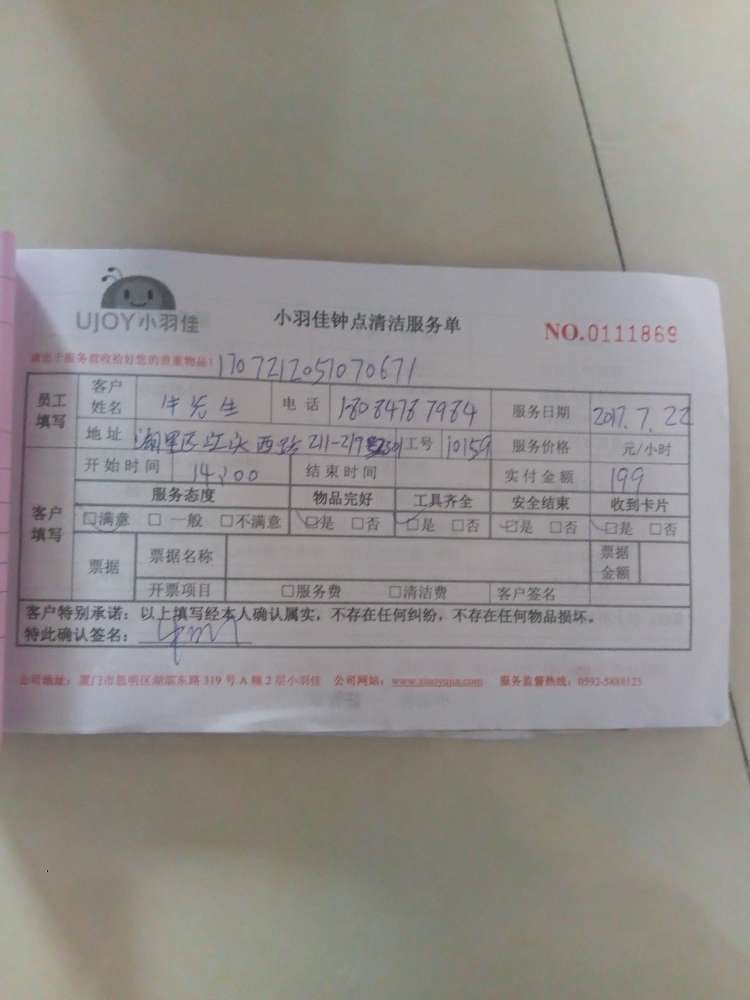 UJOY小羽佳
小羽佳钟点清洁服务单
NO.0111869
请您于服务前收拾好您的贵重物品! 1707212051070671
员工填写 客户姓名 牛先生 电话 18084787984 服务日期 2017.7.22
地址 湖里区 西路 211-217 工号 10159 服务价格 元/小时
开始时间 14:00 结束时间 实付金额 199
客户填写 服务态度 物品完好 工具齐全 安全结束 收到卡片
☑满意 □一般 □不满意 ☑是 □否 ☑是 □否 ☑是 □否 ☑是 □否
票据 票据名称 票据金额
开票项目 □服务费 □清洁费 客户签名
客户特别承诺：以上填写经本人确认属实，不存在任何纠纷，不存在任何物品损坏。
特此确认签名：
公司地址：厦门市思明区湖滨东路319号A幢2层小羽佳 公司网站：www.xiaoyujia.com 服务监督热线：0592-5888123